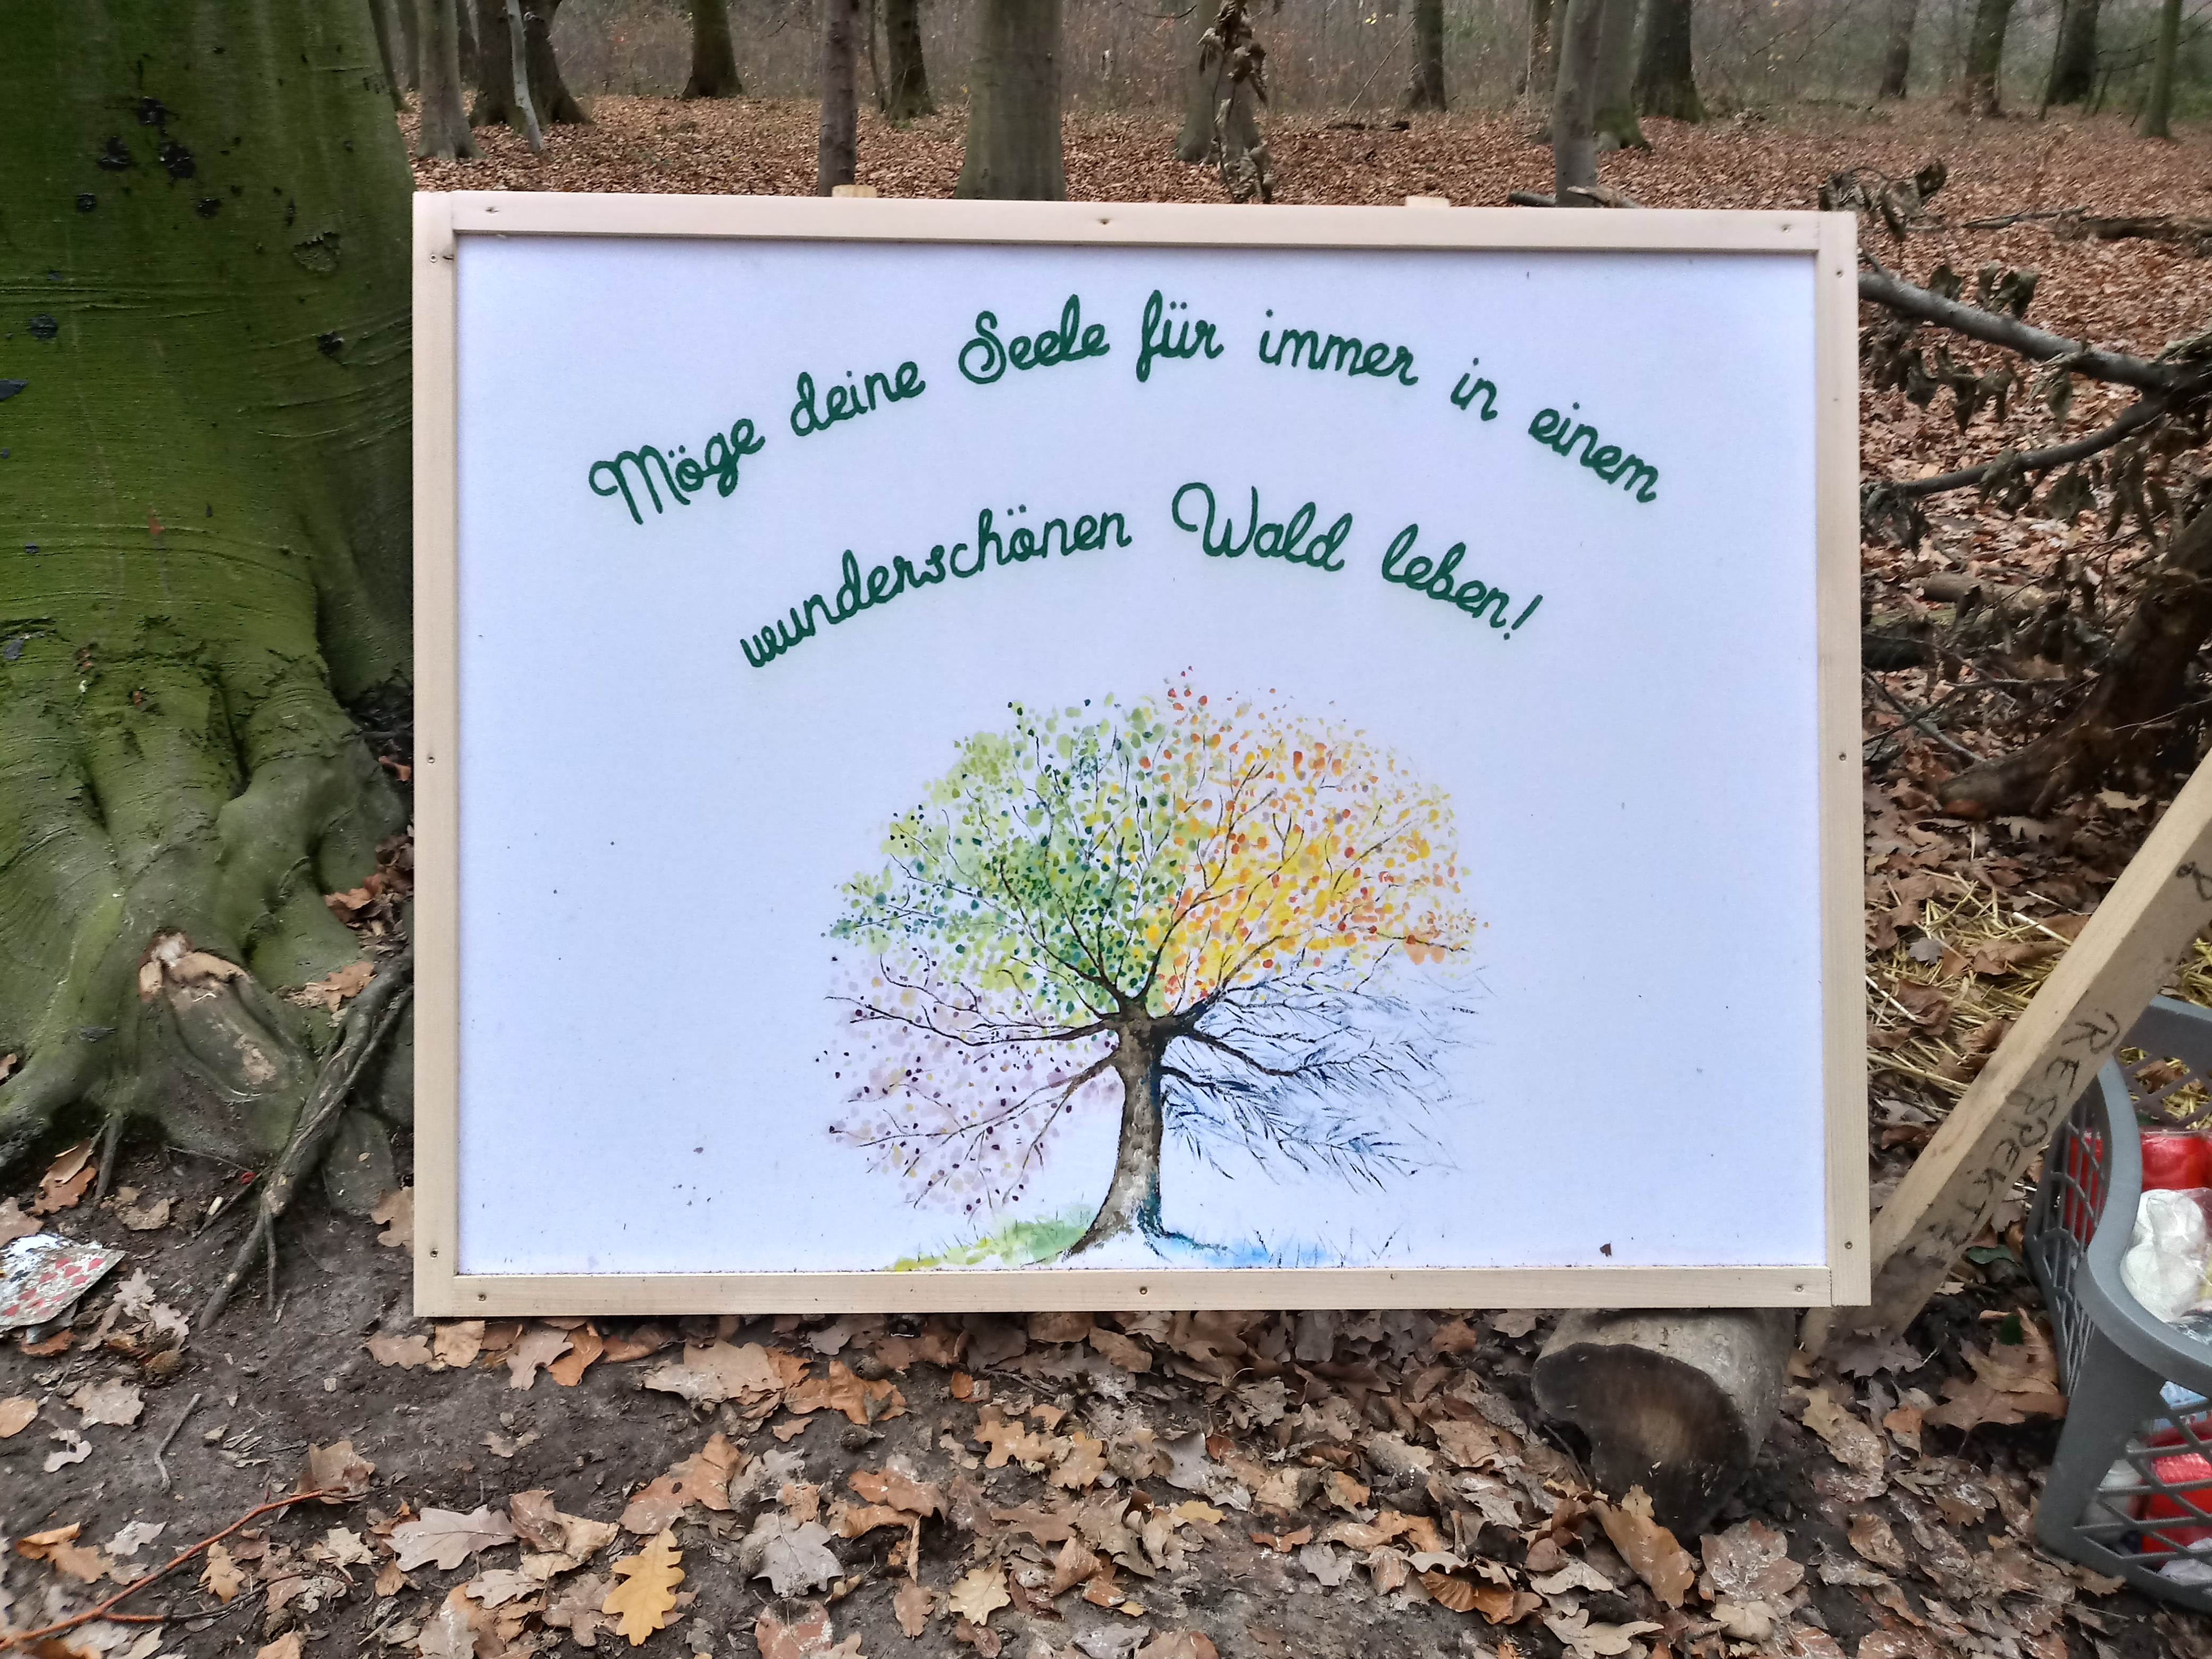 Möge deine Seele für immer in einem
wunderschönen Wald leben!
RESPEKT